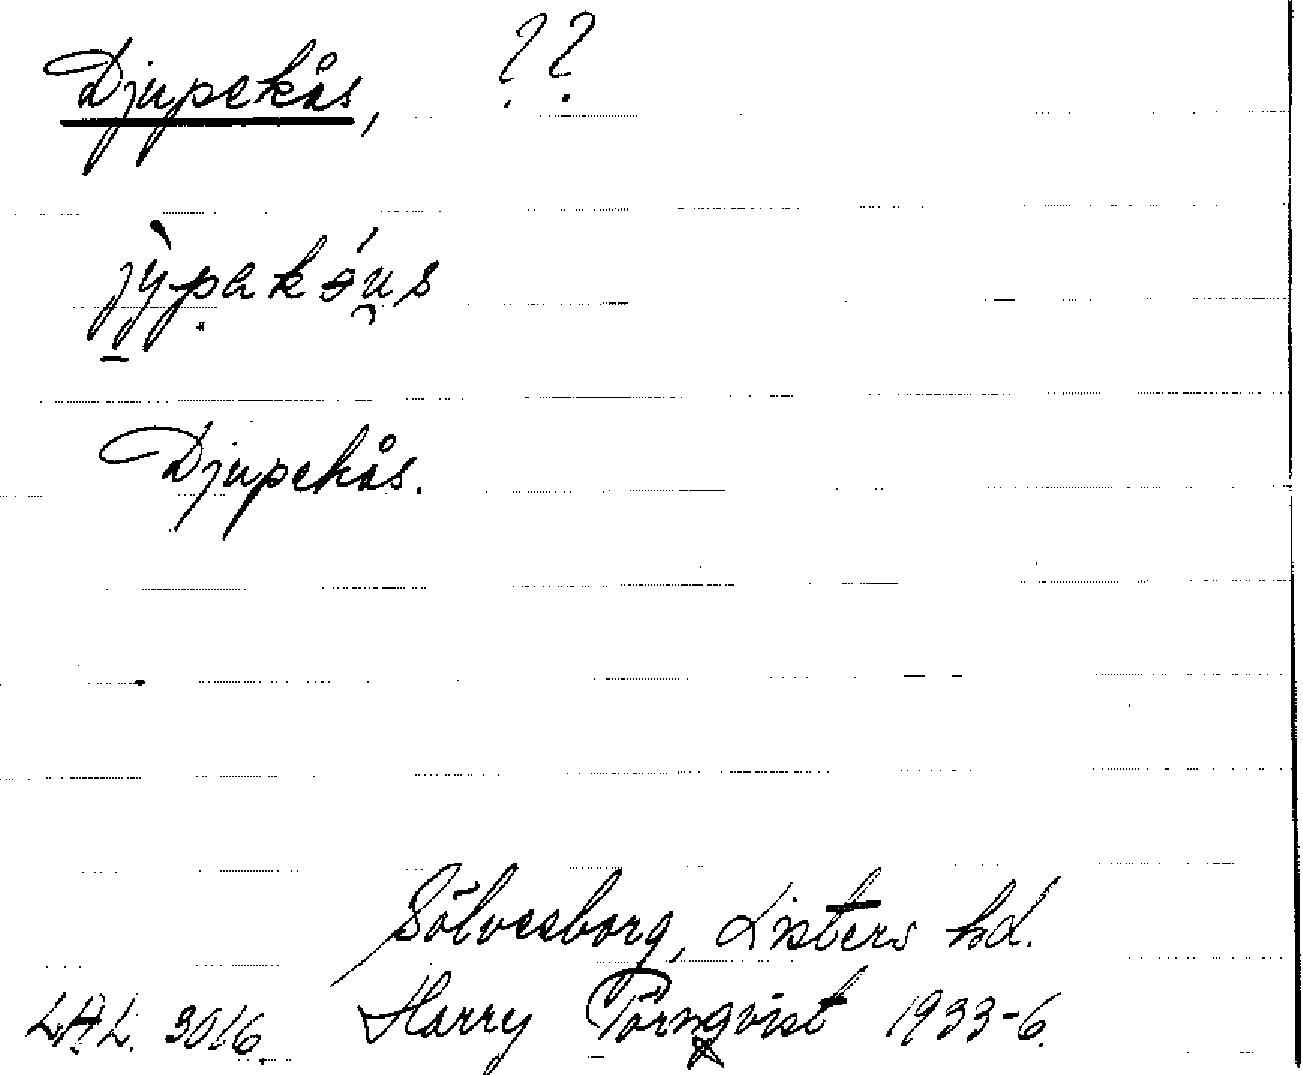 Djupekås, ??
jỳpakə́u̯s
Djupekås.
Sölvesborg, Listers hd.
LAL. 3016. Harry Törnqvist 1933-6.